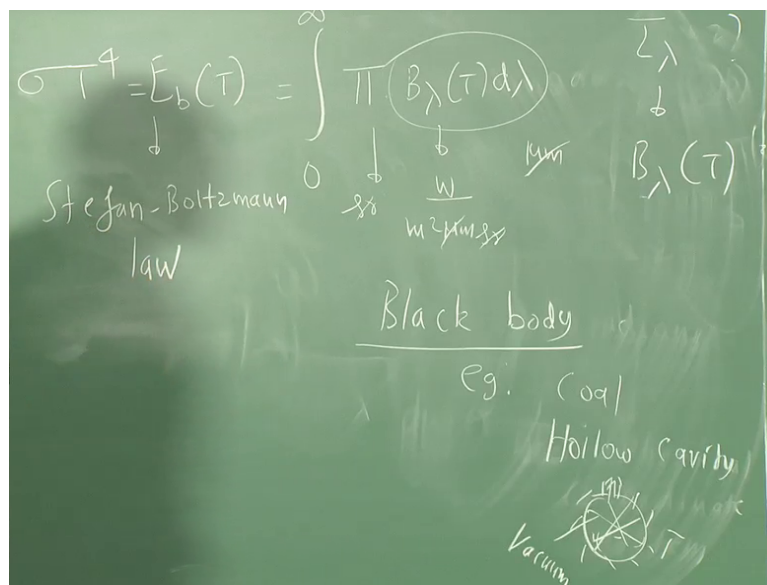 σT⁴ = E_b(T) = ∫₀^∞ π B_λ(T)dλ
Stefan-Boltzmann
law
sr
W
m²μm sr
μm
I_λ
B_λ(T)
Black body
eg. Coal
Hollow Cavity
Vacuum
T